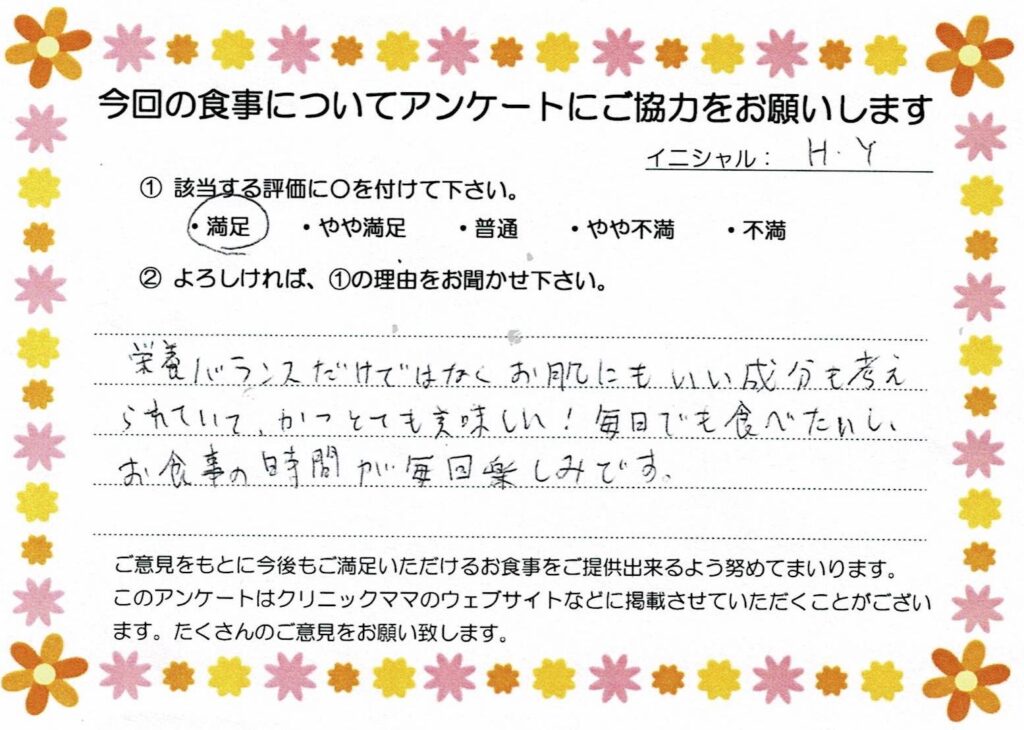 今回の食事についてアンケートにご協力をお願いします
イニシャル： H.Y
① 該当する評価に〇を付けて下さい。
・満足 ・やや満足 ・普通 ・やや不満 ・不満
② よろしければ、①の理由をお聞かせ下さい。
栄養バランスだけではなくお肌にもいい成分も考え
られていて、かつとても美味しい！毎日でも食べたいし
お食事の時間が毎回楽しみです。
ご意見をもとに今後もご満足いただけるお食事をご提供出来るよう努めてまいります。
このアンケートはクリニックママのウェブサイトなどに掲載させていただくことがござい
ます。たくさんのご意見をお願い致します。